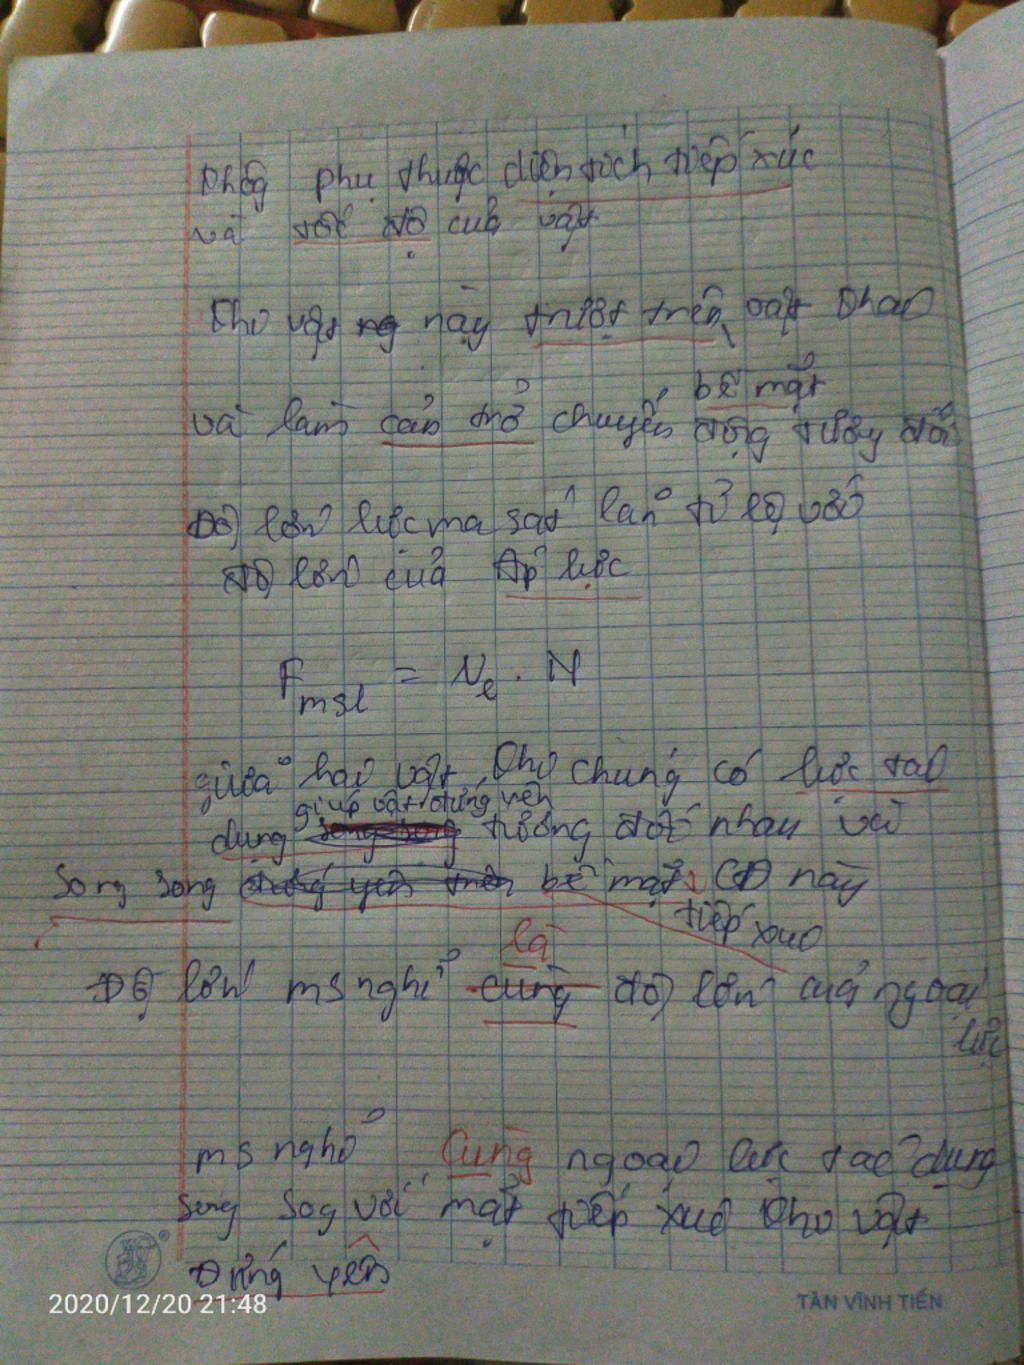 không phụ thuộc diện tích tiếp xúc
và tốc độ của vật
khi vật này trượt trên vật khác
bề mặt
và làm cản trở chuyển động tương đối
Độ lớn lực ma sát lăn tỉ lệ với
độ lớn của Áp lực
Fmsl = Nl . N
giữa hai vật khi chúng có lực tác
giúp vật đứng yên
dụng tương đối nhau và
song song bề mặt CĐ này
tiếp xúc
là
Độ lớn ms nghỉ cùng độ lớn của ngoại
lực
ms nghỉ Cùng ngoại lực tác dụng
song sog với mặt tiếp xúc khi vật
Đứng yên
2020/12/20 21:48
TÂN VĨNH TIẾN